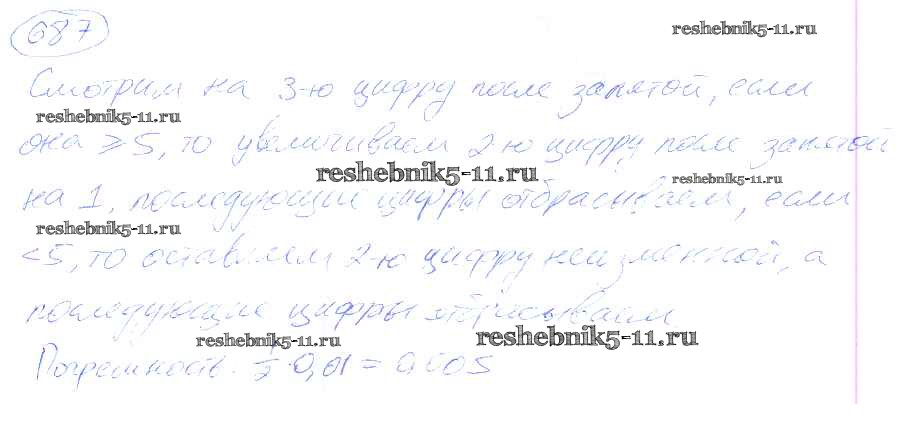 687
reshebnik5-11.ru
Смотрим на 3-ю цифру после запятой, если
reshebnik5-11.ru
она ≥5, то увеличиваем 2-ю цифру после запятой
reshebnik5-11.ru
reshebnik5-11.ru
на 1, последующие цифры отбрасываем, если
reshebnik5-11.ru
<5, то оставляем 2-ю цифру неизменной, а
последующие цифры отбрасываем
reshebnik5-11.ru
reshebnik5-11.ru
Погрешность. 1/2·0,01=0,005